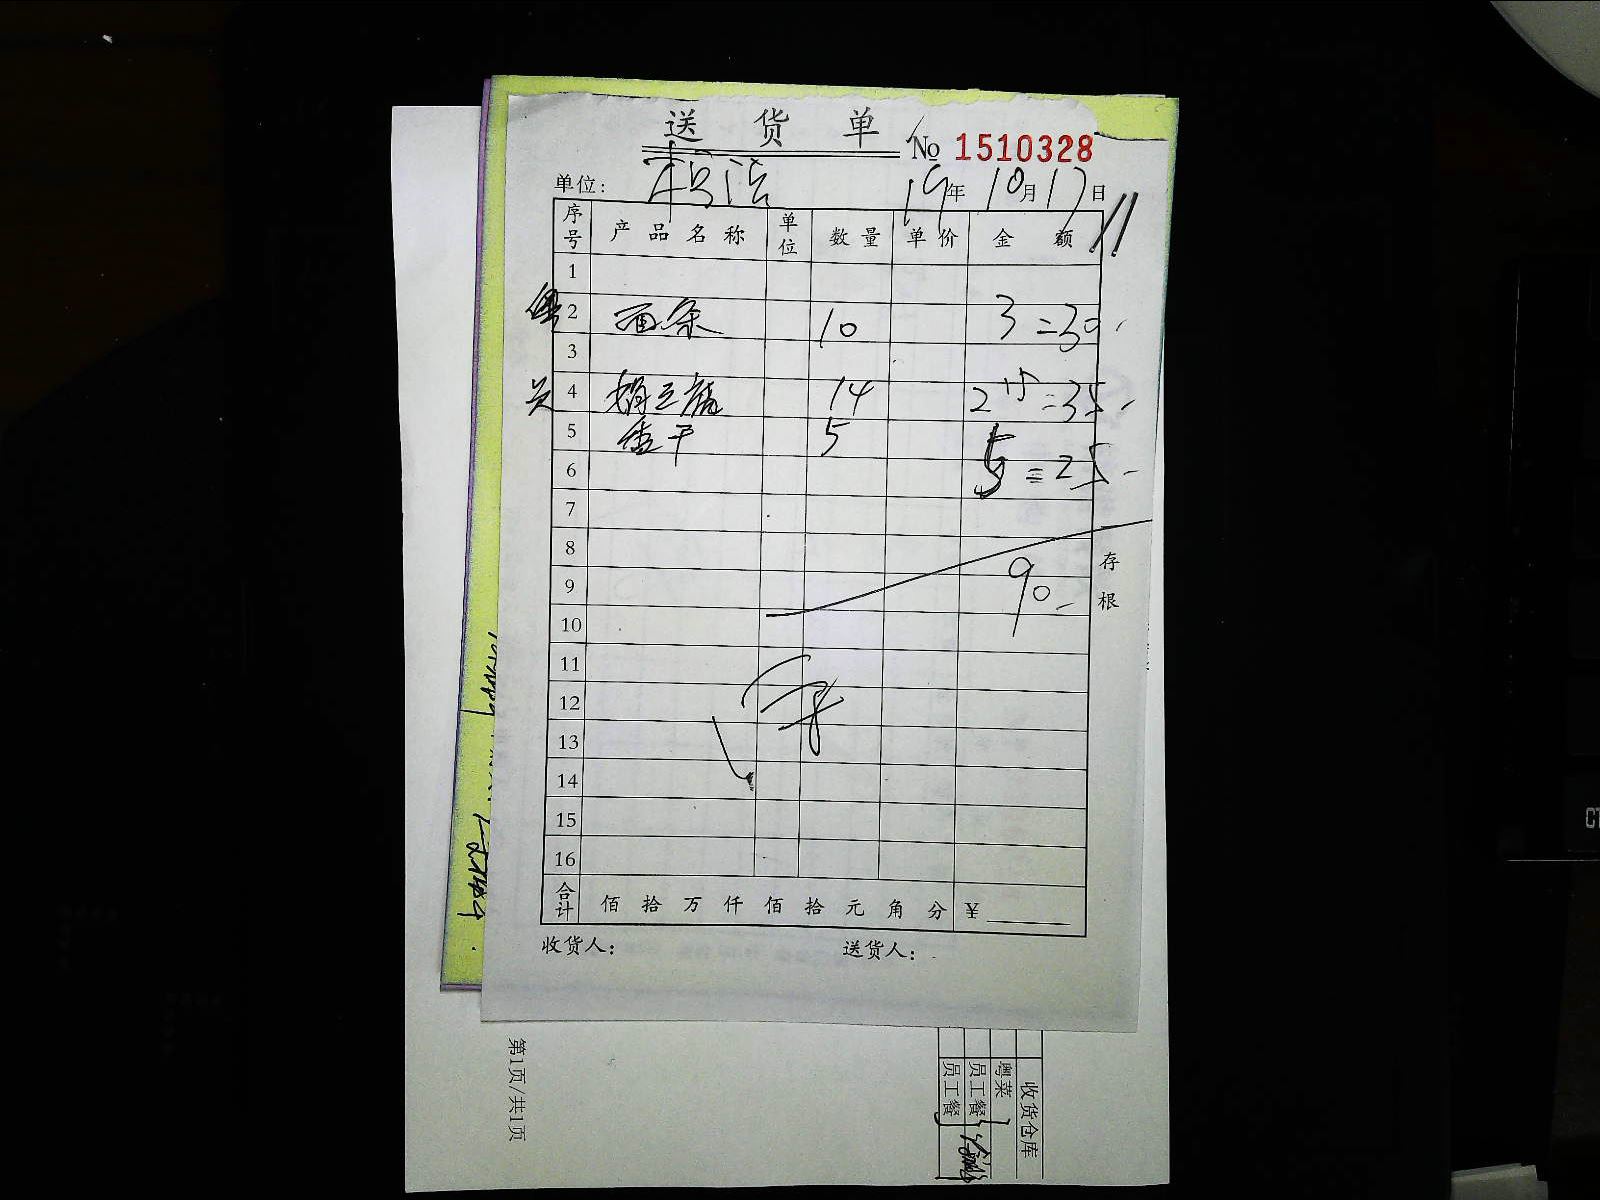 送货单
№ 1510328
单位: 19年10月17日
序号 产品名称 单位 数量 单价 金额
1
粤 2 面条 10 3=30
3
员 4 豆腐 14 2.5=35
5 香干 5 5=25
6
7
8
9 90
10
11
12
13
14
15
16
合计 佰拾万仟佰拾元角分 ¥
收货人: 送货人:
存根
第1页/共1页
收货仓库
粤菜
员工餐
员工餐